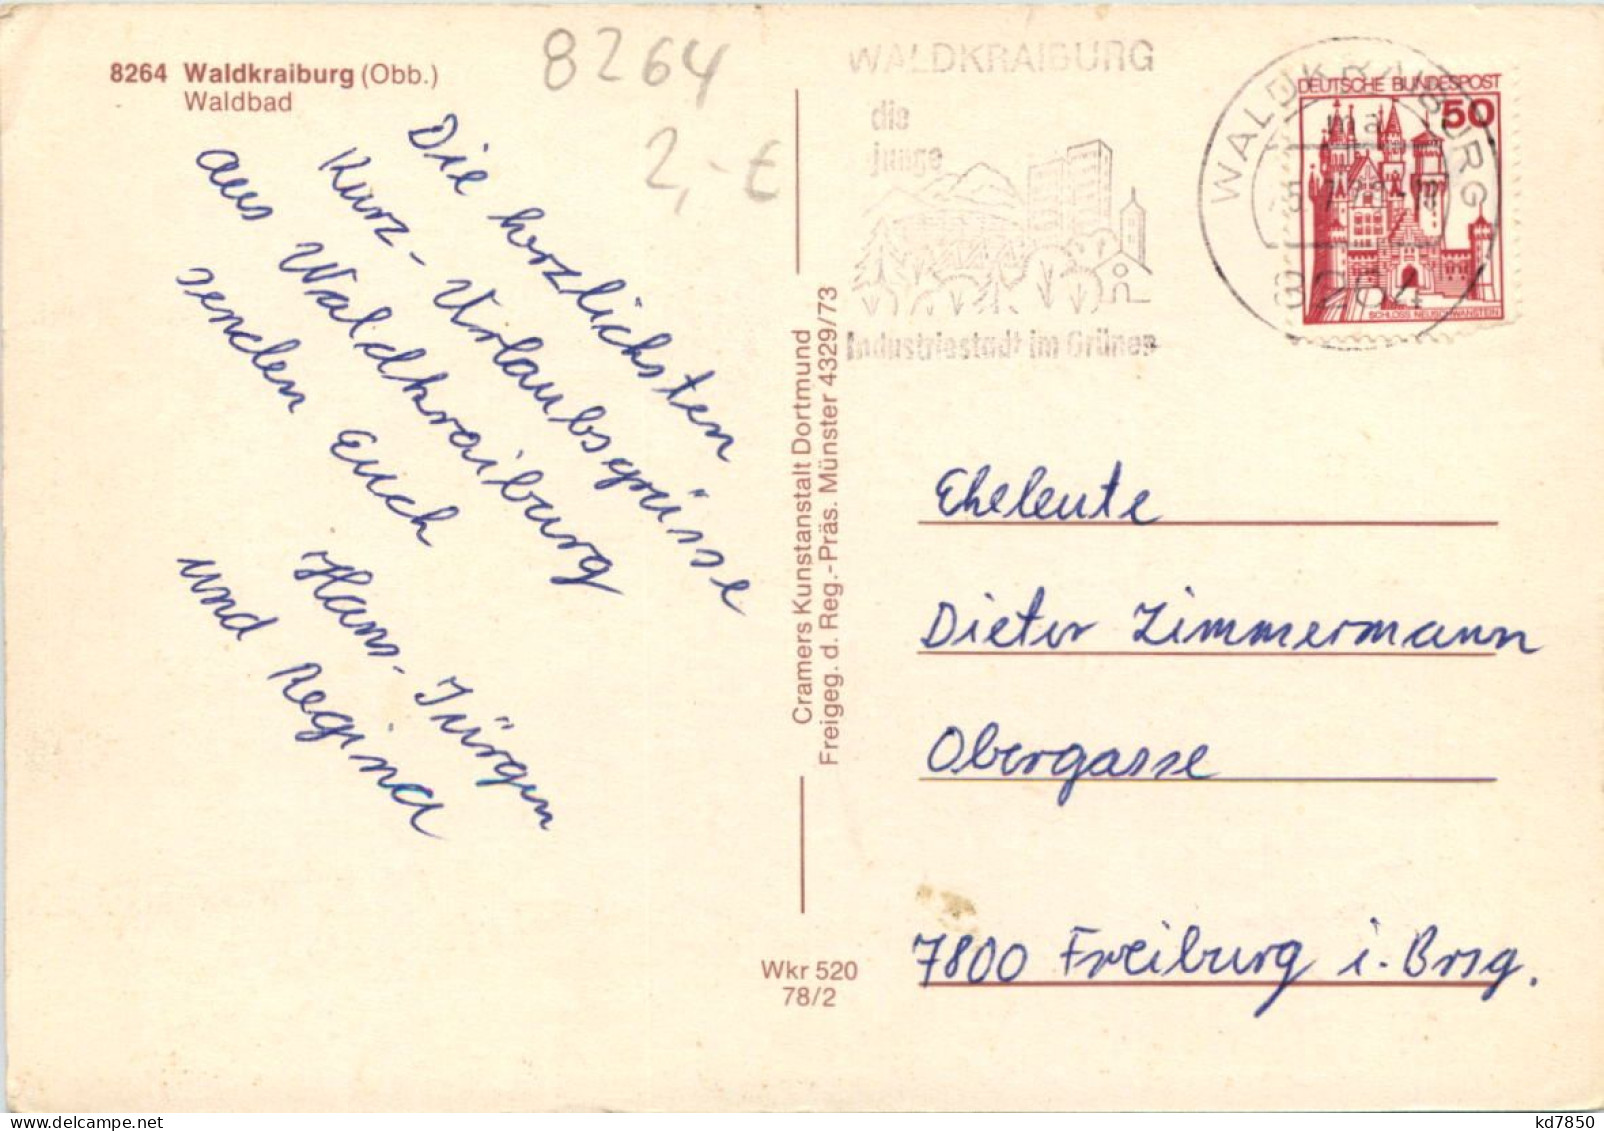 8264 Waldkraiburg (Obb.)
Waldbad
8264
2,-€
Die herzlichsten
Kurz-Urlaubsgrüsse
aus Waldkraiburg
senden Euch
Hans-Jürgen
und Regina
Cramers Kunstanstalt Dortmund
Freigeg. d. Reg.-Präs. Münster 4329/73
Wkr 520
78/2
WALDKRAIBURG
die
junge
Industriestadt im Grünen
WALDKRAIBURG
ma
8264
DEUTSCHE BUNDESPOST
50
SCHLOSS NEUSCHWANSTEIN
Eheleute
Dieter Zimmermann
Obergasse
7800 Freiburg i. Brsg.
kd7850